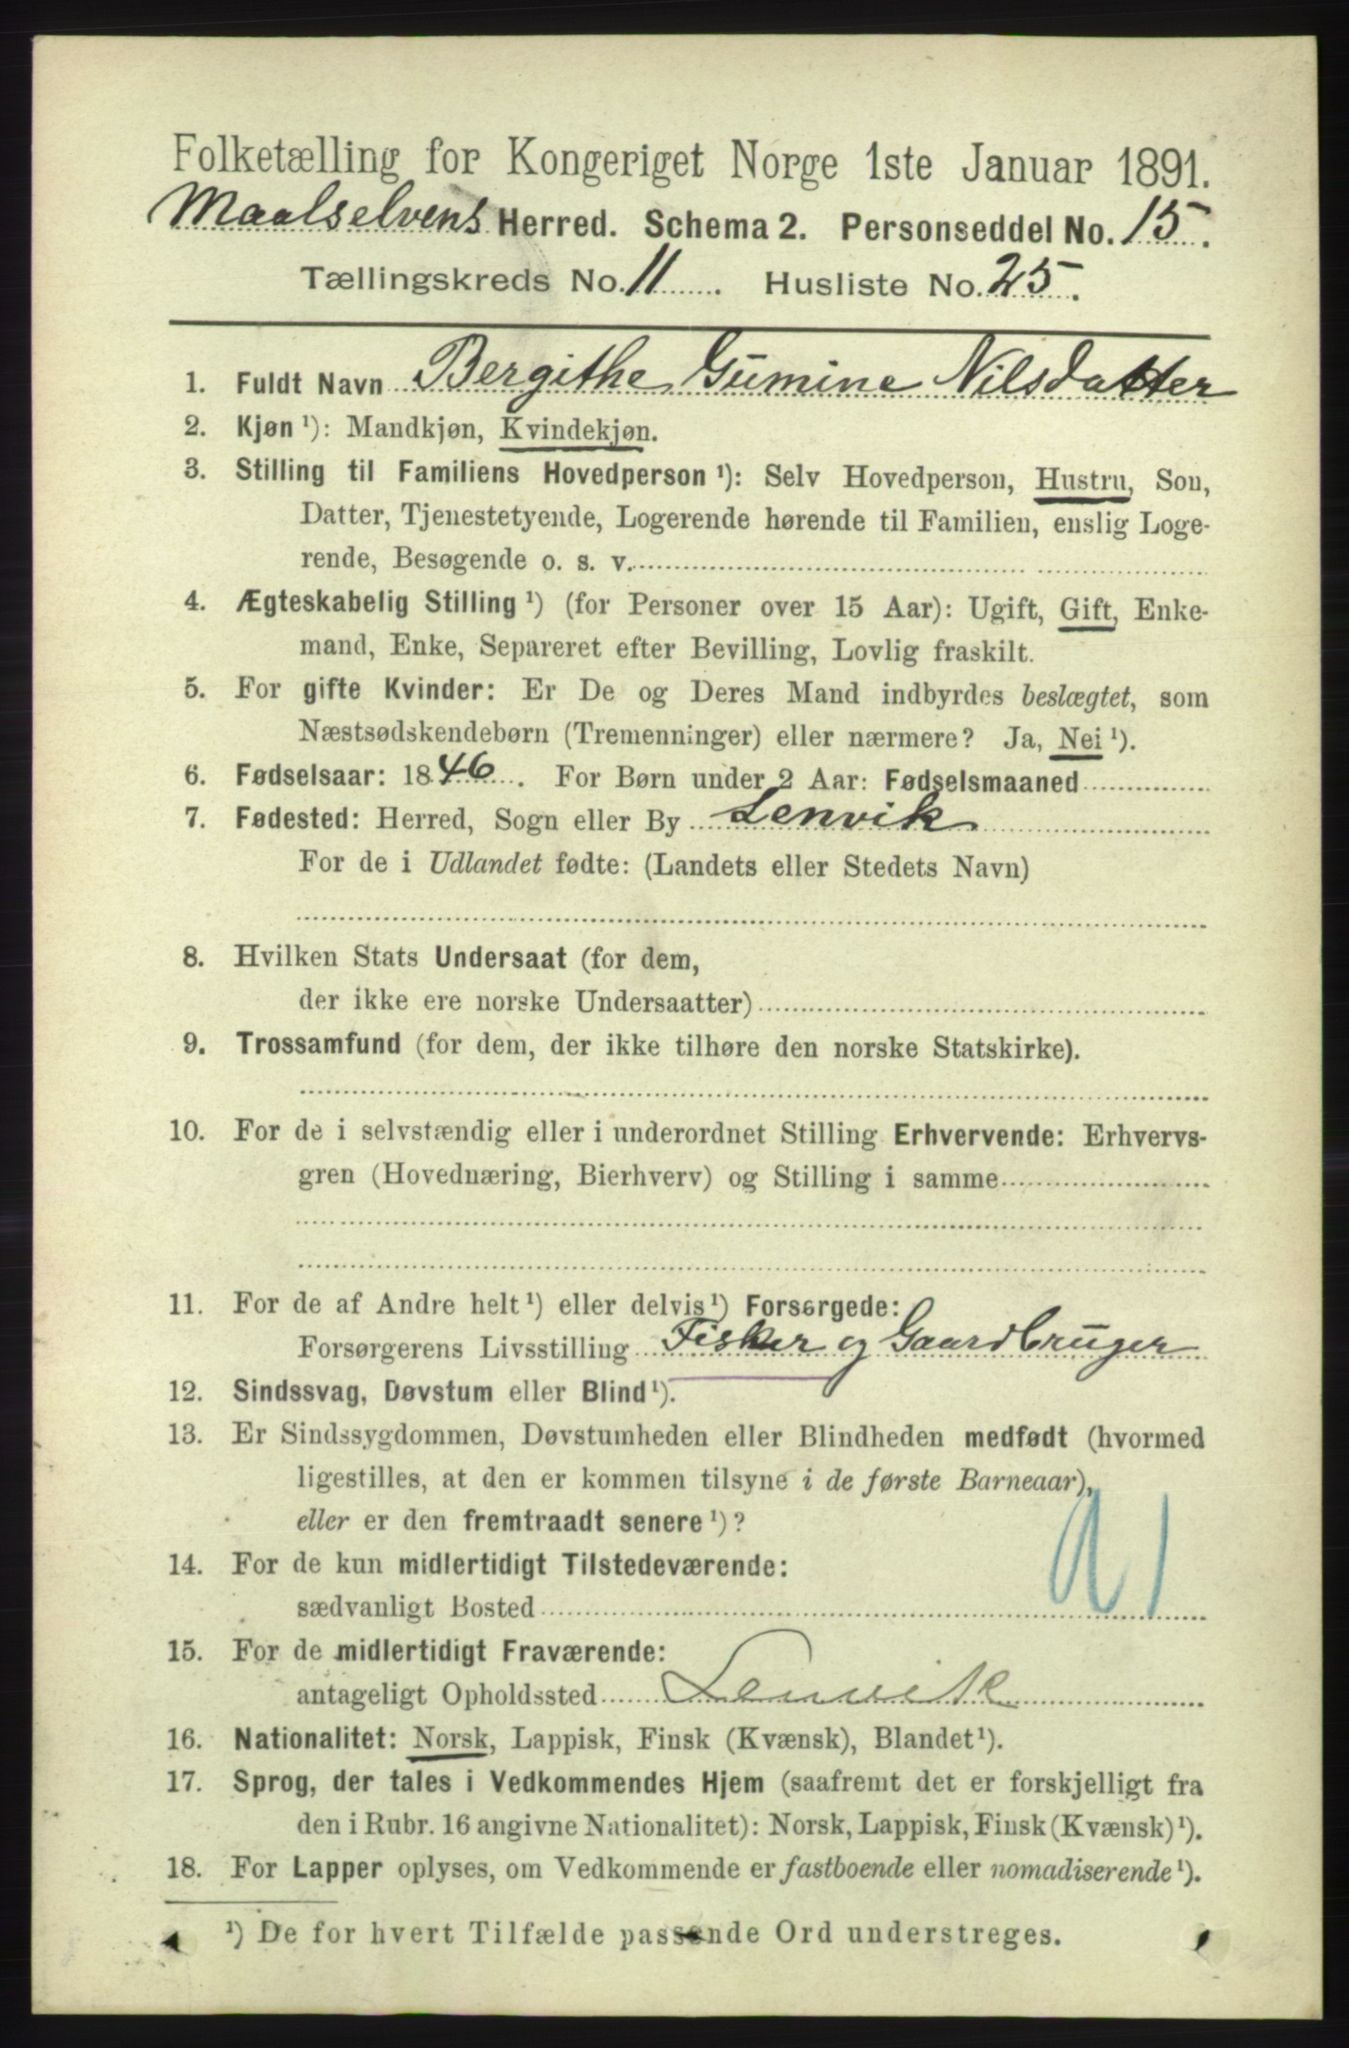 Folketælling for Kongeriget Norge 1ste Januar 1891.
Maalselvens Herred. Schema 2. Personseddel No. 15.
Tællingskreds No. 11. Husliste No. 25.
1. Fuldt Navn Bergithe Gumine Nilsdatter
2. Kjøn ¹): Mandkjøn, Kvindekjøn.
3. Stilling til Familiens Hovedperson ¹): Selv Hovedperson, Hustru, Søn,
Datter, Tjenestetyende, Logerende hørende til Familien, enslig Loge-
rende, Besøgende o. s. v.
4. Ægteskabelig Stilling ¹) (for Personer over 15 Aar): Ugift, Gift, Enke-
mand, Enke, Separeret efter Bevilling, Lovlig fraskilt.
5. For gifte Kvinder: Er De og Deres Mand indbyrdes beslægtet, som
Næstsødskendebørn (Tremenninger) eller nærmere? Ja, Nei ¹).
6. Fødselsaar: 1846. For Børn under 2 Aar: Fødselsmaaned
7. Fødested: Herred, Sogn eller By Lenvik
For de i Udlandet fødte: (Landets eller Stedets Navn)
8. Hvilken Stats Undersaat (for dem,
der ikke ere norske Undersaatter)
9. Trossamfund (for dem, der ikke tilhøre den norske Statskirke).
10. For de i selvstændig eller i underordnet Stilling Erhvervende: Erhvervs-
gren (Hovednæring, Bierhverv) og Stilling i samme
11. For de af Andre helt ¹) eller delvis ¹) Forsørgede:
Forsørgerens Livsstilling Fisker og Gaardbruger
12. Sindssvag, Døvstum eller Blind ¹).
13. Er Sindssygdommen, Døvstumheden eller Blindheden medfødt (hvormed
ligestilles, at den er kommen tilsyne i de første Barneaar),
eller er den fremtraadt senere ¹)?
91
14. For de kun midlertidigt Tilstedeværende:
sædvanligt Bosted
15. For de midlertidigt Fraværende:
antageligt Opholdssted Lenvik
16. Nationalitet: Norsk, Lappisk, Finsk (Kvænsk), Blandet ¹).
17. Sprog, der tales i Vedkommendes Hjem (saafremt det er forskjelligt fra
den i Rubr. 16 angivne Nationalitet): Norsk, Lappisk, Finsk (Kvænsk) ¹).
18. For Lapper oplyses, om Vedkommende er fastboende eller nomadiserende ¹).
¹) De for hvert Tilfælde passende Ord understreges.